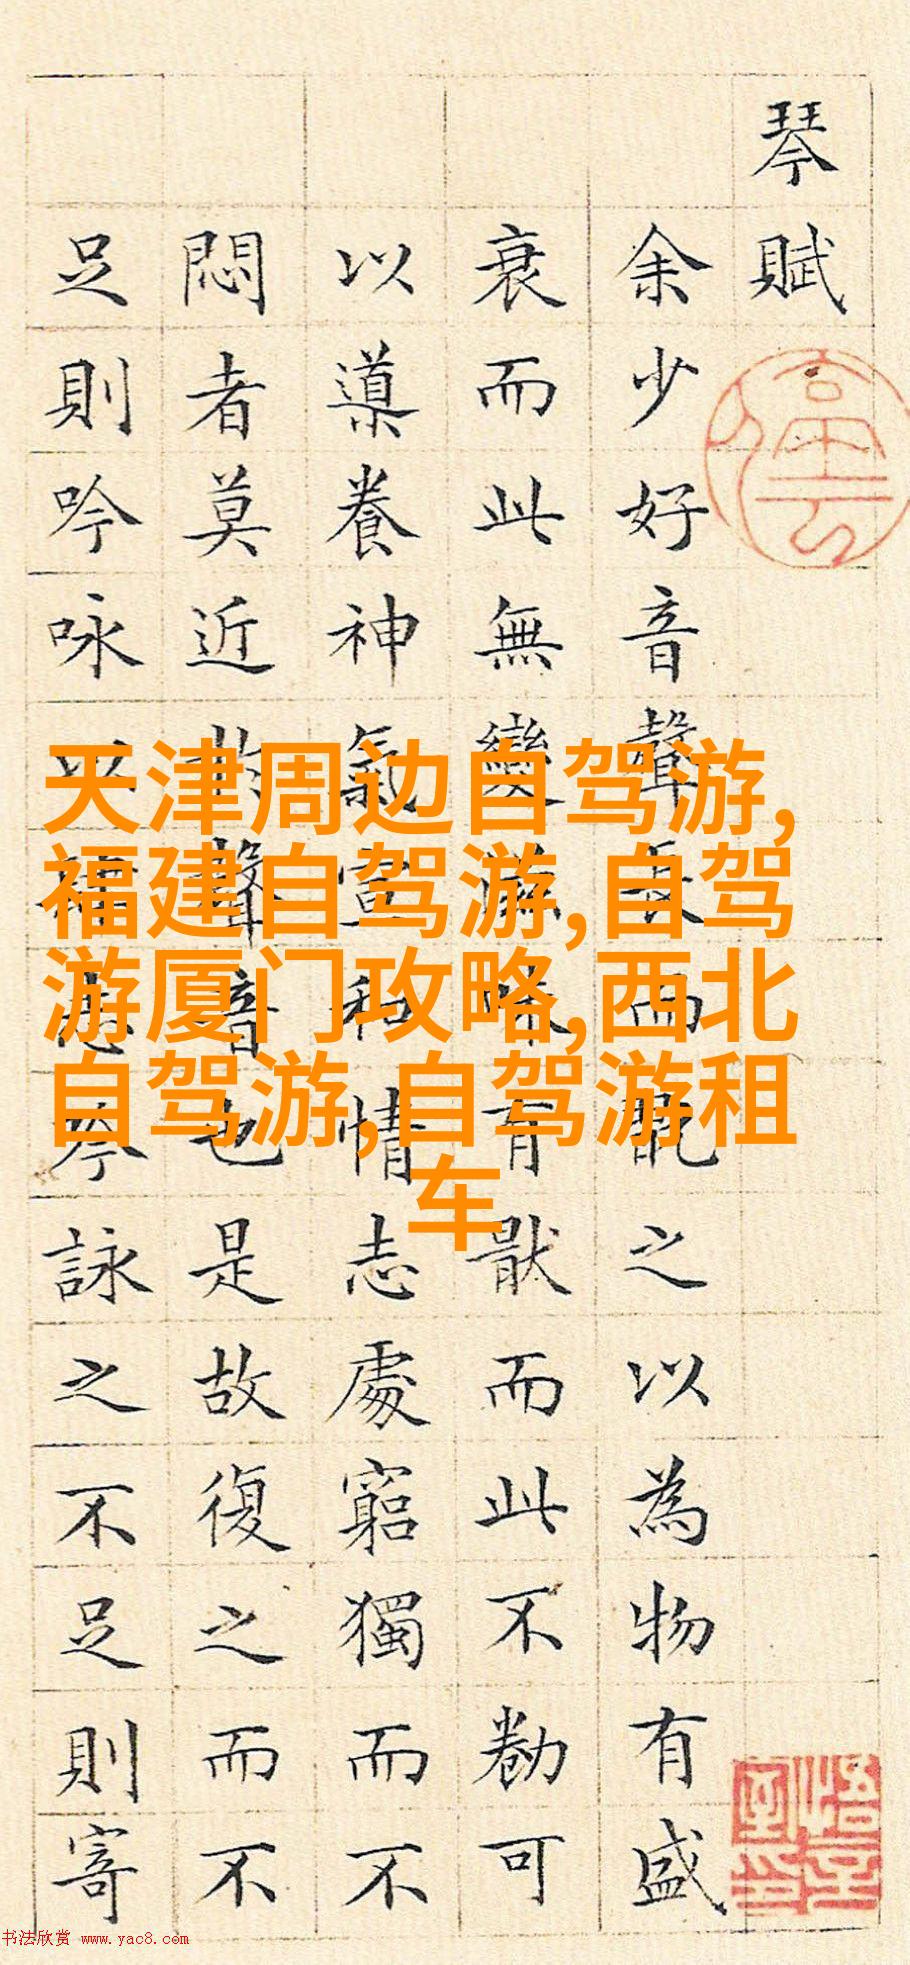 琴賦
余少好音聲長而翫之以為物有盛
衰而此無變滋味有猒而此不勌可
以導養神氣宣和情志處窮獨而不
悶者莫近於聲音也是故復之而不
足則吟咏以志吟詠之不足則寄
停雲
悟言室印
天津周边自驾游,
福建自驾游,自驾
游厦门攻略,西北
自驾游,自驾游租
车
书法欣赏 www.yac8.com